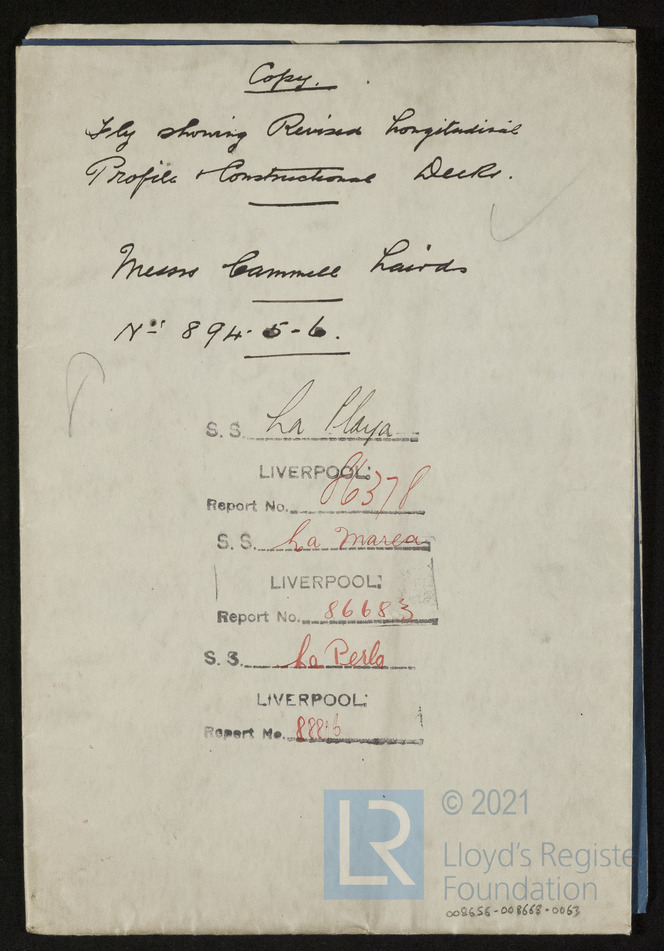 Copy.
Fly showing Revised Longitudinal
Profile & Constructional Decks.
Messrs Cammell Lairds
No 894-5-6.
S. S. La Playa
LIVERPOOL:
Report No. 86378
S. S. La Marea
LIVERPOOL:
Report No. 86683
S. S. La Perla
LIVERPOOL:
Report No.
LR
© 2021
Lloyd's Register
Foundation
008656-008668-0063